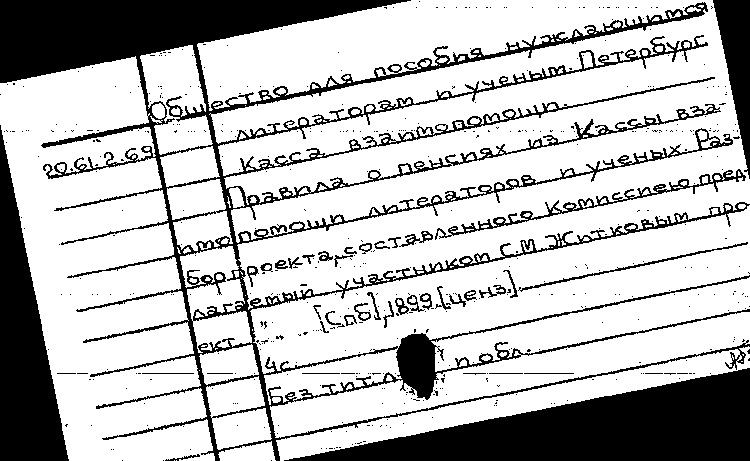 Общество для пособия нуждающимся
литераторам и ученым. Петербург
Касса взаимопомощи.
20.61.2.69
Правила о пенсиях из Кассы вза-
имопомощи литераторов и ученых. Раз-
бор проекта, составленного Комиссиею, пред-
лагаемый участником С.М. Житковым про-
ект. " " [Спб], 1899 [ценз].
4с.
Без тит. л. и обл.